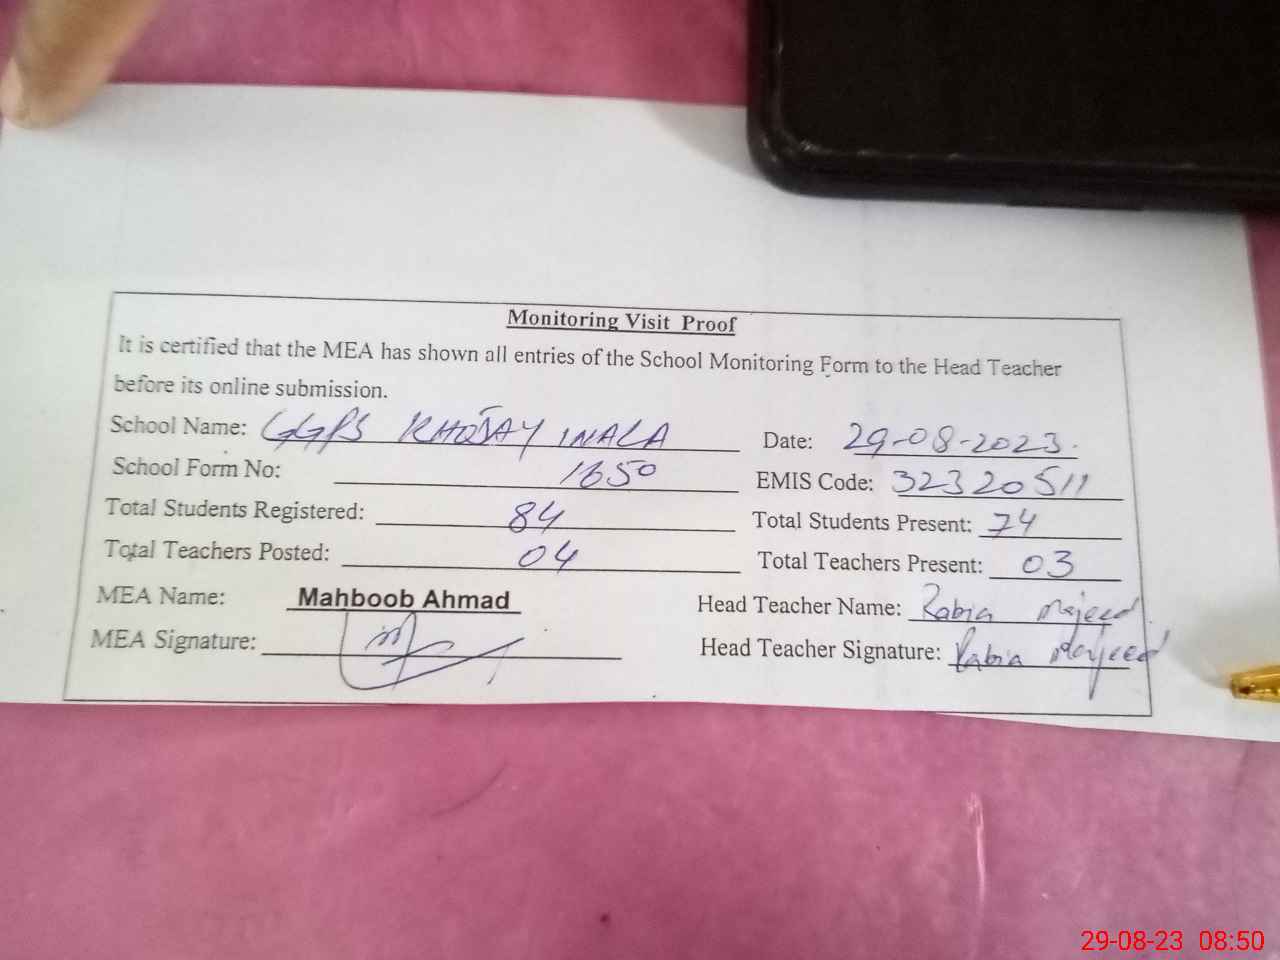 Monitoring Visit Proof
It is certified that the MEA has shown all entries of the School Monitoring Form to the Head Teacher
before its online submission.
School Name: GGPS KHOSAY WALA Date: 29-08-2023.
School Form No: 1650 EMIS Code: 32320511
Total Students Registered: 84 Total Students Present: 74
Total Teachers Posted: 04 Total Teachers Present: 03
MEA Name: Mahboob Ahmad Head Teacher Name: Rabia Majeed
MEA Signature: Head Teacher Signature: Rabia Majeed
29-08-23 08:50